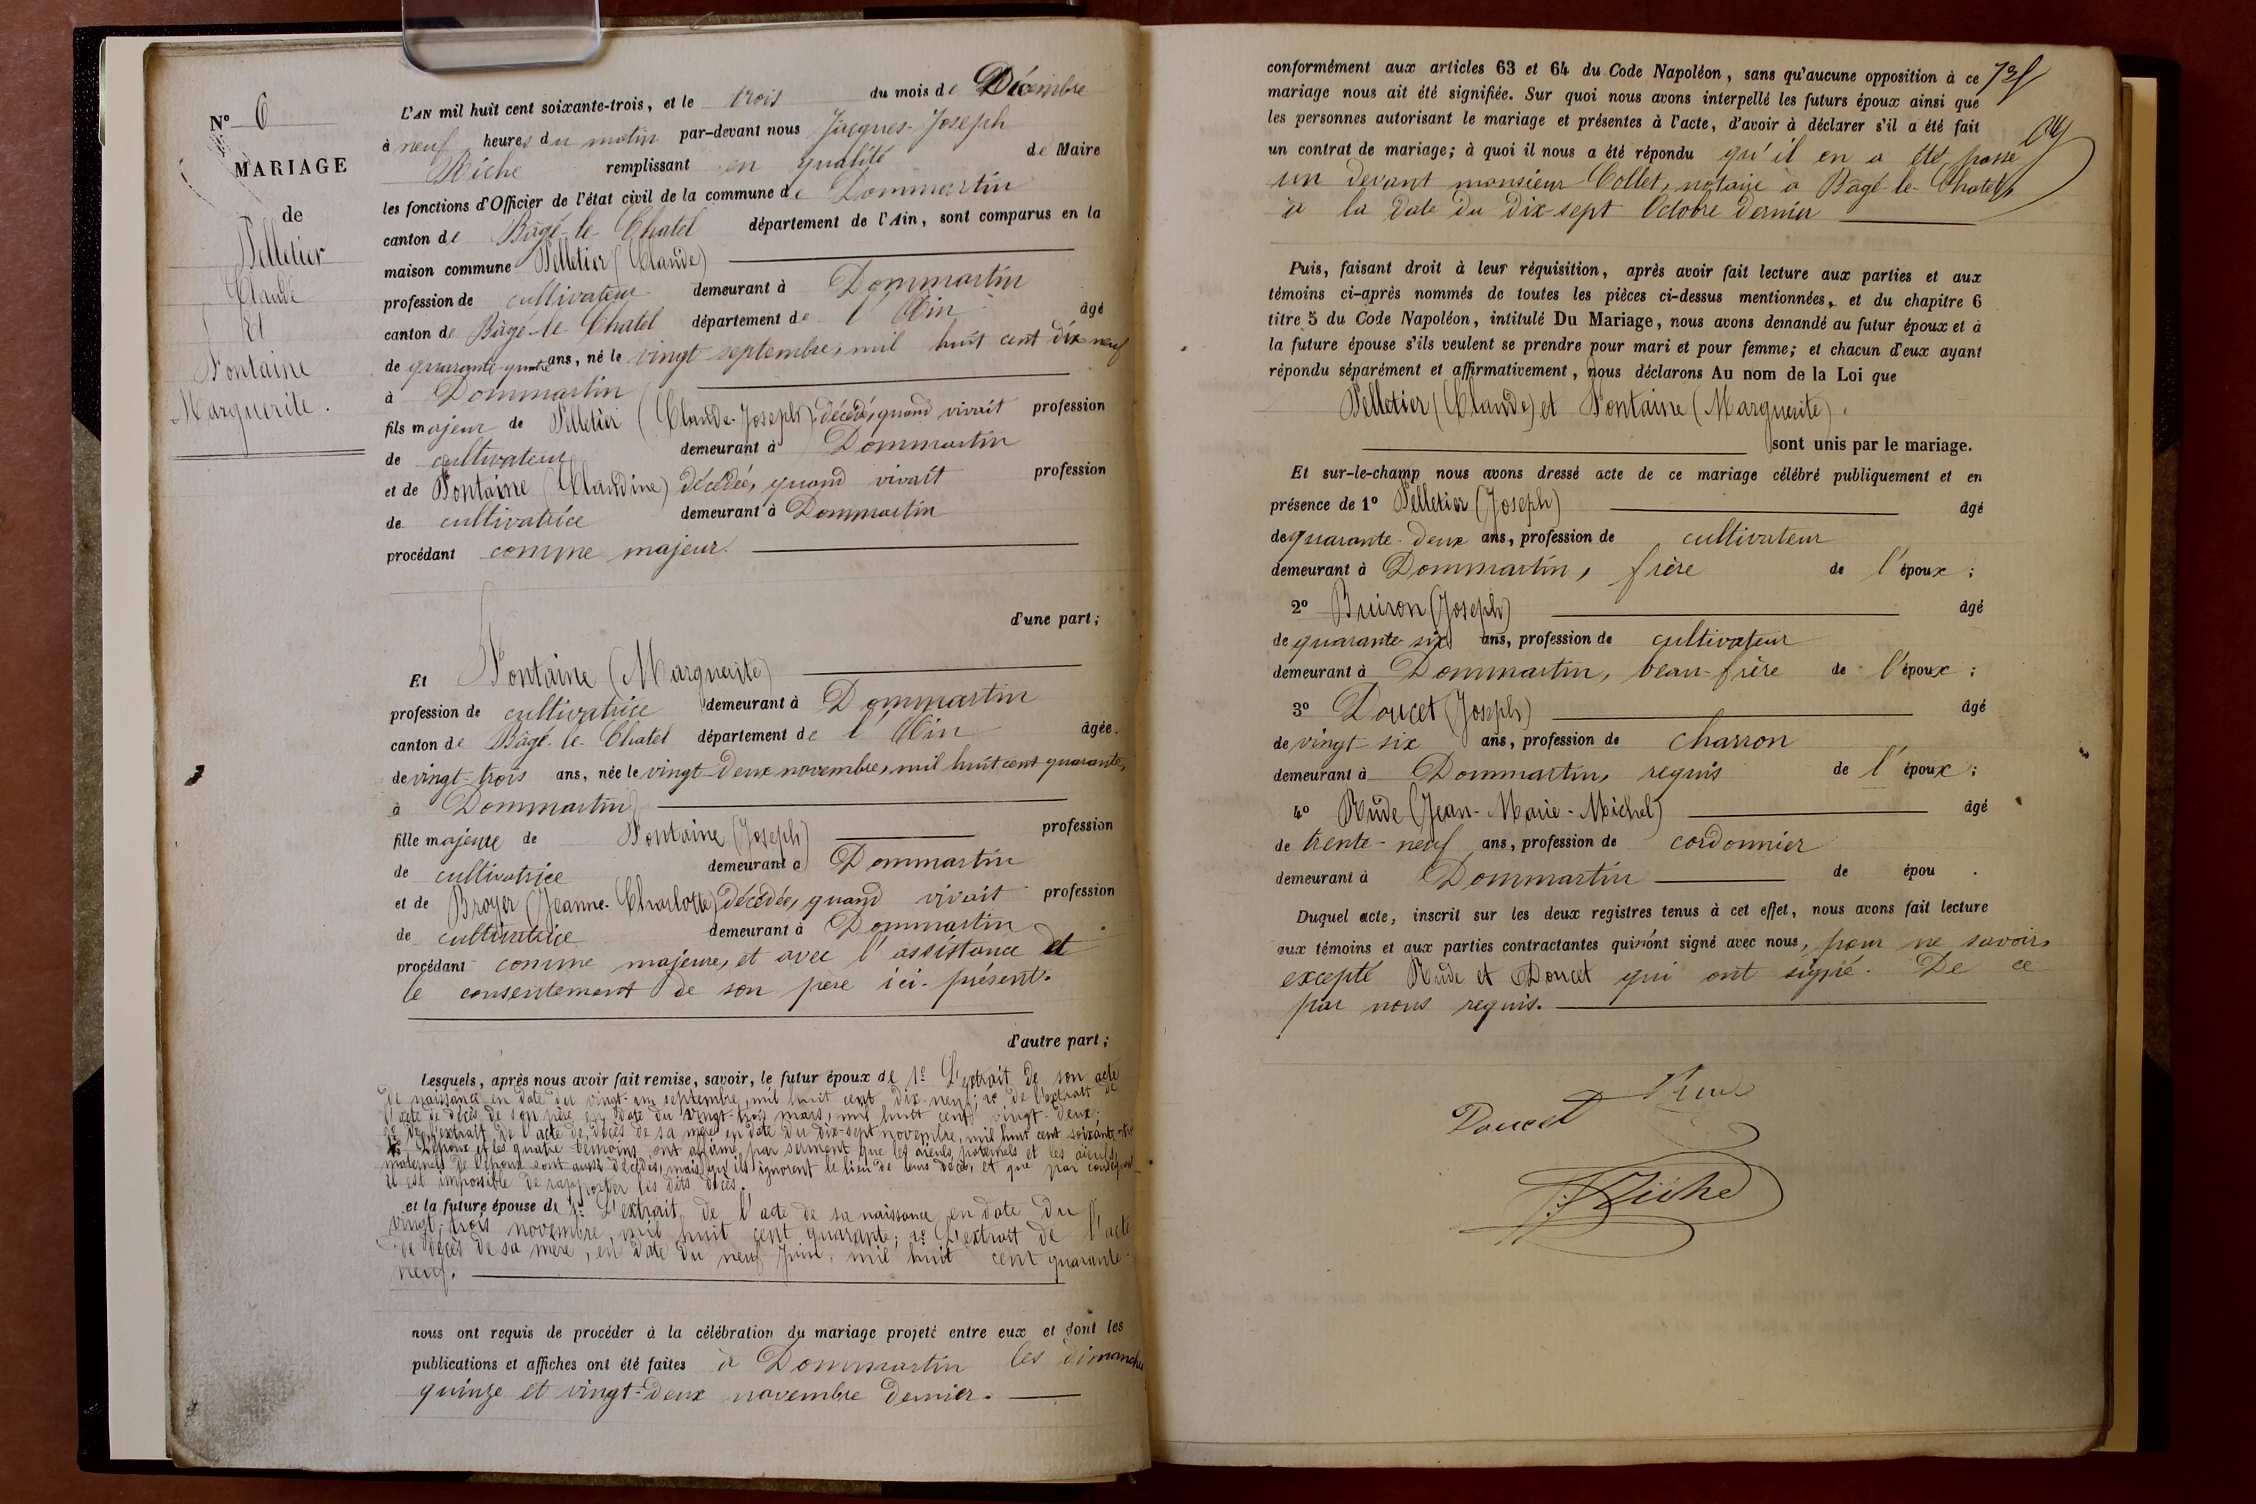 N° 6
MARIAGE
de
Pelletier
Claude
Et
Fontaine
Marguerite.
L'AN mil huit cent soixante-trois, et le trois du mois de Décembre
à neuf heures du matin par-devant nous Jacques-Joseph
Riche remplissant en qualité de Maire
les fonctions d'Officier de l'état civil de la commune de Dommartin
canton de Bâgé-le-Chatel département de l'Ain, sont comparus en la
maison commune Pelletier (Claude)
profession de cultivateur demeurant à Dommartin
canton de Bâgé-le-Chatel département de l'Ain âgé
de quarante-quatre ans, né le vingt septembre, mil huit cent dix neuf
à Dommartin
fils majeur de Pelletier (Claude-Joseph) décédé, quand vivait profession
de cultivateur demeurant à Dommartin
et de Fontaine (Claudine) décédée, quand vivait profession
de cultivatrice demeurant à Dommartin
procédant comme majeur.
d'une part;
Et Fontaine (Marguerite)
profession de cultivatrice demeurant à Dommartin
canton de Bâgé-le-Chatel département de l'Ain âgée.
de vingt-trois ans, née le vingt-deux novembre, mil huit cent quarante,
à Dommartin
fille majeure de Fontaine (Joseph) profession
de cultivatrice demeurant a Dommartin
et de Broyer (Jeanne-Charlotte) décédée, quand vivait profession
de cultivatrice demeurant à Dommartin
procédant comme majeure, et avec l'assistance et
le consentement de son père ici-présent.
d'autre part;
Lesquels, après nous avoir fait remise, savoir, le futur époux de 1° L'extrait de son acte
de naissance en date du vingt-un septembre, mil huit cent dix-neuf; 2° de l'extrait de
l'acte de décès de son père en date du vingt-trois mars, mil huit cent vingt-deux;
3° de l'extrait de l'acte de décès de sa mère en date du dix-sept novembre, mil huit cent soixante
L'époux et les quatre témoins ont affirmé par serment que les aïeuls paternels et les aïeuls
maternels de l'époux sont aussi décédés, mais qu'ils ignorent le lieu de leurs décès, et que par conséquent
il est impossible de rapporter les dits décès.
et la future épouse de 1° L'extrait de l'acte de sa naissance en date du
vingt-trois novembre, mil huit cent quarante; 2° L'extrait de l'acte
de décès de sa mère, en date du neuf Juin, mil huit cent quarante-
neuf.
nous ont requis de procéder à la célébration du mariage projeté entre eux et dont les
publications et affiches ont été faites à Dommartin les dimanches
quinze et vingt-deux novembre dernier.
conformément aux articles 63 et 64 du Code Napoléon, sans qu'aucune opposition à ce
mariage nous ait été signifiée. Sur quoi nous avons interpellé les futurs époux ainsi que
les personnes autorisant le mariage et présentes à l'acte, d'avoir à déclarer s'il a été fait
un contrat de mariage; à quoi il nous a été répondu qu'il en a été passé
un devant monsieur Collet, notaire à Bâgé-le-Chatel,
à la date du dix-sept Octobre dernier
Puis, faisant droit à leur réquisition, après avoir fait lecture aux parties et aux
témoins ci-après nommés de toutes les pièces ci-dessus mentionnées, et du chapitre 6
titre 5 du Code Napoléon, intitulé Du Mariage, nous avons demandé au futur époux et à
la future épouse s'ils veulent se prendre pour mari et pour femme; et chacun d'eux ayant
répondu séparément et affirmativement, nous déclarons Au nom de la Loi que
Pelletier (Claude) et Fontaine (Marguerite).
sont unis par le mariage.
Et sur-le-champ nous avons dressé acte de ce mariage célébré publiquement et en
présence de 1° Pelletier (Joseph) âgé
de quarante-deux ans, profession de cultivateur
demeurant à Dommartin, frère de l'époux;
2° Buiron (Joseph) âgé
de quarante-six ans, profession de cultivateur
demeurant à Dommartin, beau-frère de l'époux;
3° Doucet (Joseph) âgé
de vingt-six ans, profession de charron
demeurant à Dommartin, requis de l'époux;
4° Rude (Jean-Marie-Michel) âgé
de trente-neuf ans, profession de cordonnier
demeurant à Dommartin de épou .
Duquel acte, inscrit sur les deux registres tenus à cet effet, nous avons fait lecture
aux témoins et aux parties contractantes qui n'ont signé avec nous, pour ne savoir,
excepté Rude et Doucet qui ont signé. De ce
par nous requis.
Rude
Doucet
J:J Riche